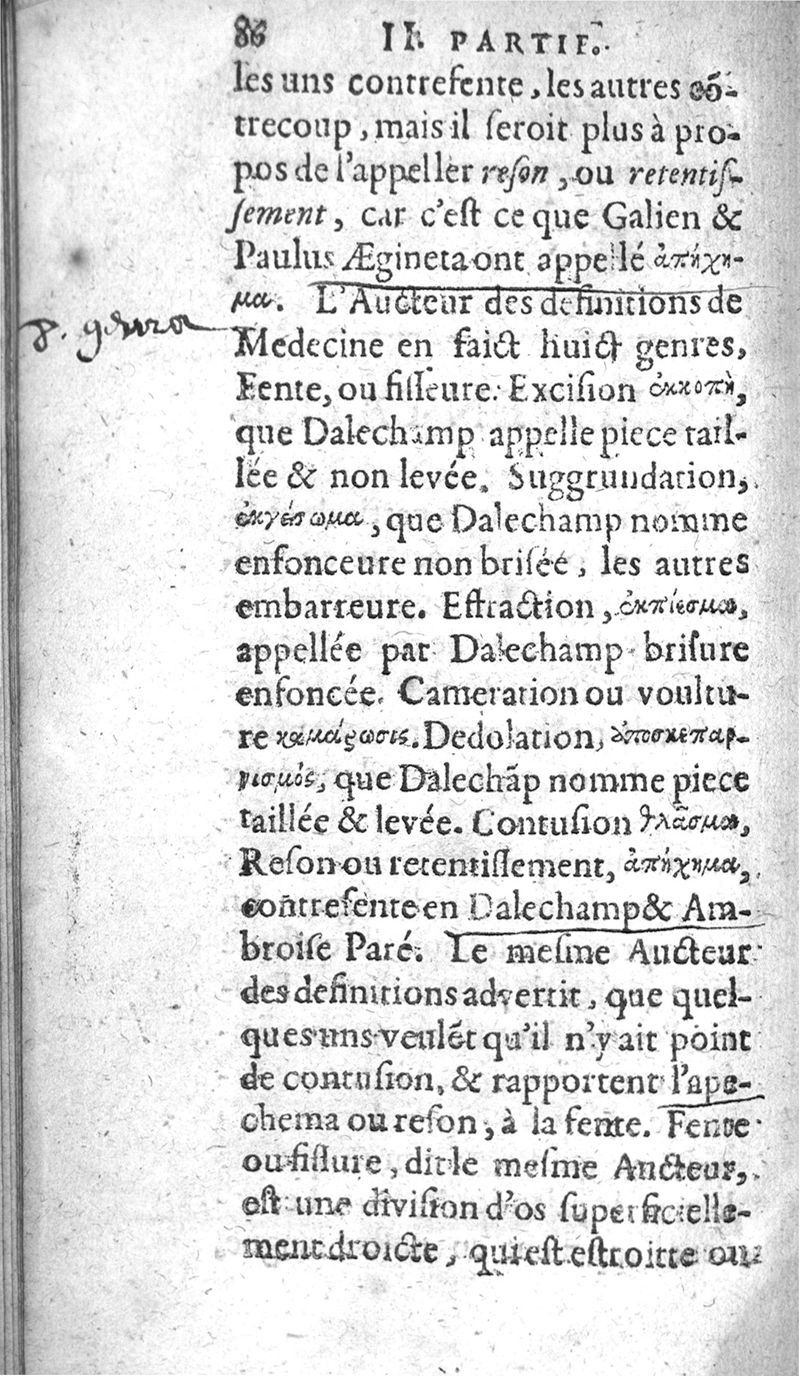 86 II. PARTIE.
les uns contrefente, les autres cõ-
trecoup, mais il ſeroit plus à pro-
pos de l'appeller reſon, ou retentiſ-
ſement, car c'eſt ce que Galien &
Paulus Ægineta ont appellé ἀπήχη-
μα. L'Aucteur des definitions de
Medecine en faict huict genres,
Fente, ou fiſſeure. Exciſion ἐκκοπὴ,
que Dalechamp appelle piece tail-
lée & non levée. Suggrundation,
ἐκγείσωμα, que Dalechamp nomme
enfonceure non briſéé, les autres
embarreure. Eſtraction, ἐκπίεσμα,
appellée par Dalechamp briſure
enfoncée. Cameration ou voultu-
re καμάρωσις. Dedolation, ἀποσκεπαρ-
νισμὸς, que Dalechãp nomme piece
taillée & levée. Contuſion θλᾶσμα,
Reſon ou retentiſſement, ἀπήχημα,
contrefente en Dalechamp & Am-
broiſe Paré. Le meſme Aucteur
des definitions advertit, que quel-
ques uns veulẽt qu'il n'y ait point
de contuſion, & rapportent l'ape-
chema ou reſon, à la fente. Fente
ou fiſſure, dit le meſme Aucteur,
eſt une diviſion d'os ſuperficielle-
ment droicte, qui eſt eſtroitte ou